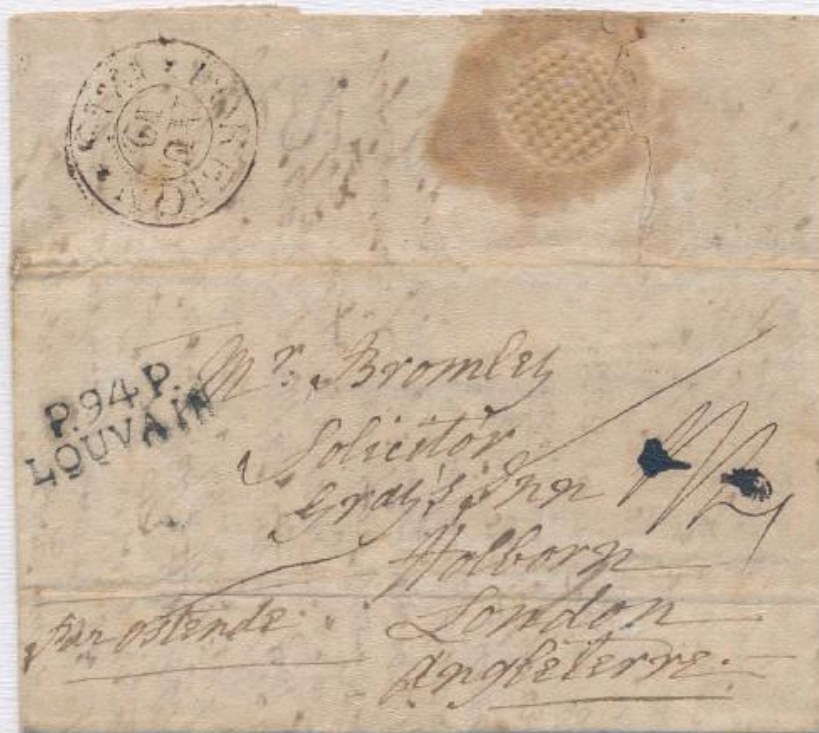 FOREIGN
AU
19
P.94.P.
LOUVAIN
Mr. Bromley
Solicitor
Gray's Inn
Holborn
London
Angleterre.
par ostende.